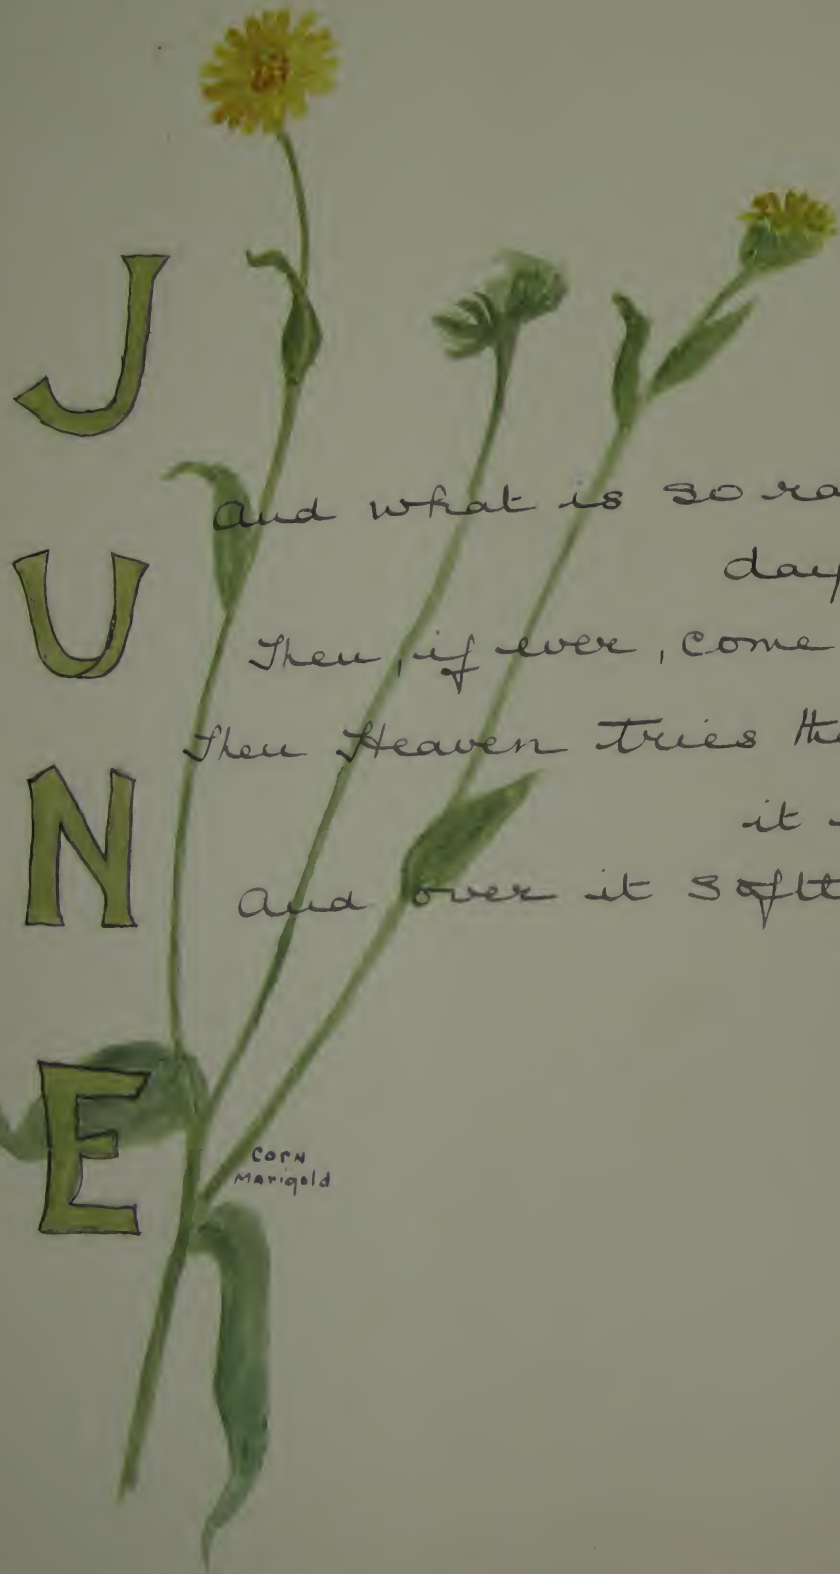 JUNE
And what is so ra
day
Then, if ever, come
Then Heaven tries the
it
And over it softl
Corn
Marigold